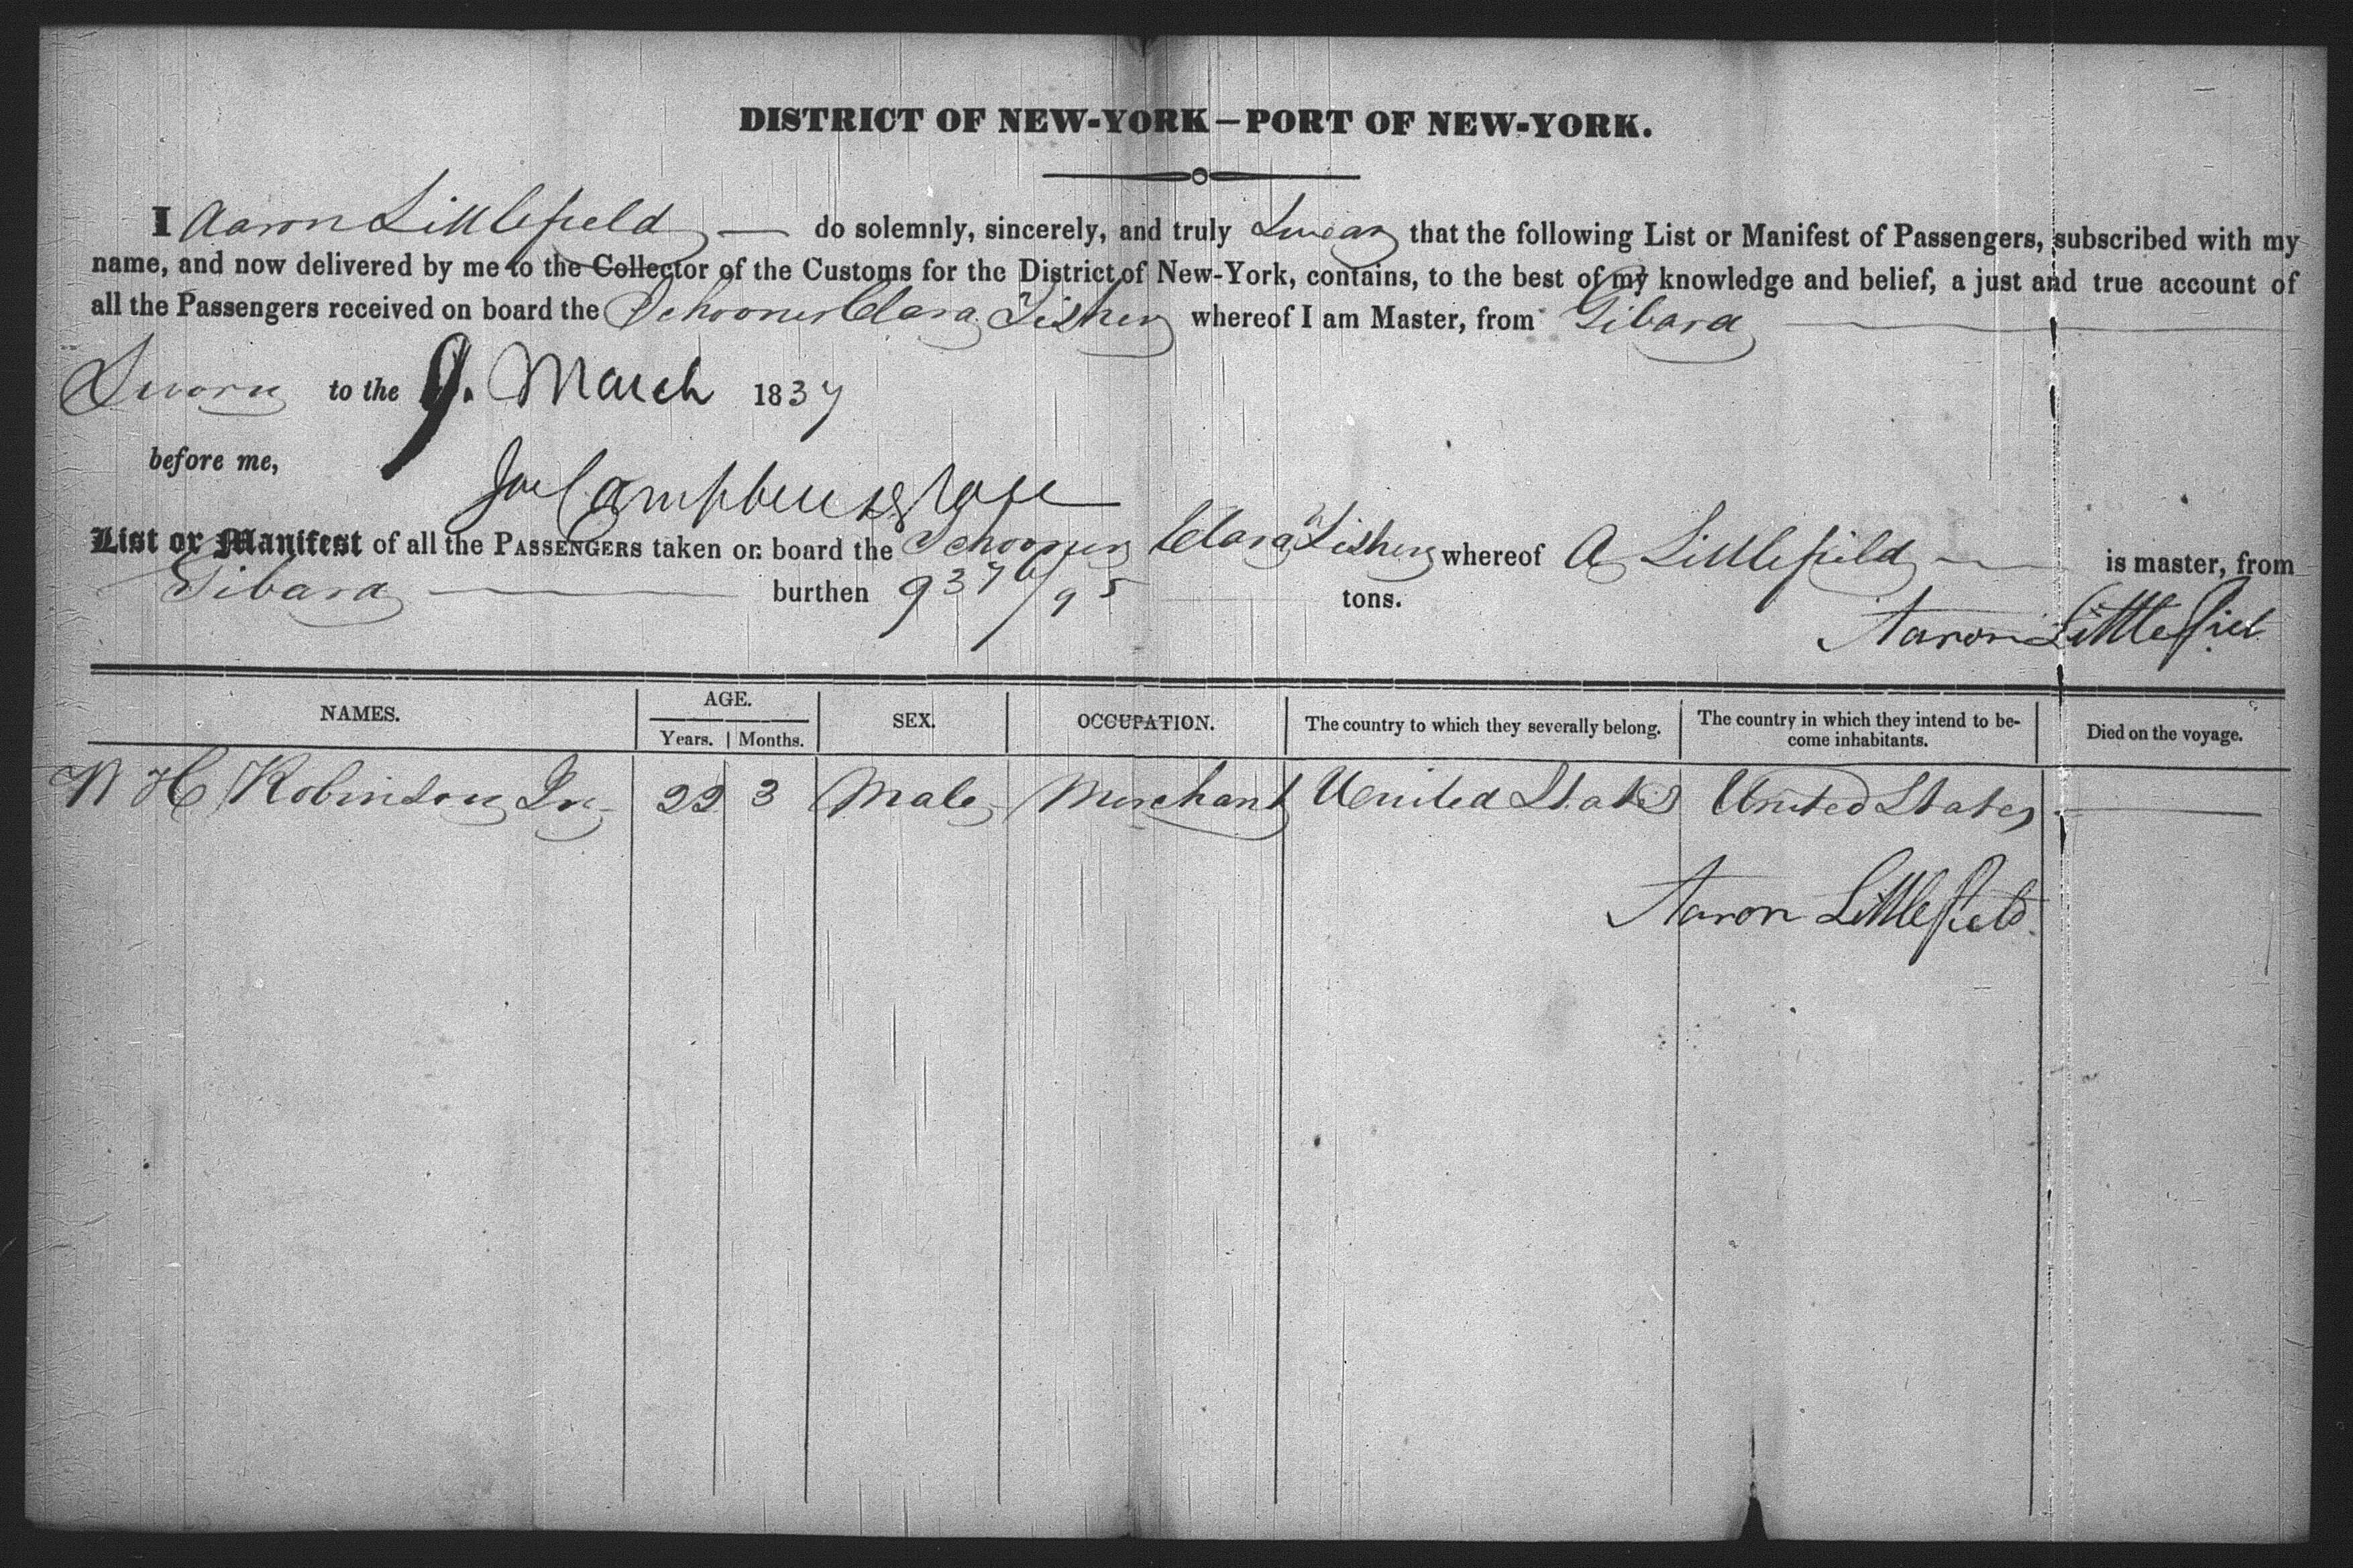 DISTRICT OF NEW-YORK—PORT OF NEW-YORK.
I Aaron Littlefield — do solemnly, sincerely, and truly Swear that the following List or Manifest of Passengers, subscribed with my
name, and now delivered by me to the Collector of the Customs for the District of New-York, contains, to the best of my knowledge and belief, a just and true account of
all the Passengers received on board the Schooner Clara Fisher whereof I am Master, from Gibara
Sworn to the 9. March 1837
before me,
Campbell
List or Manifest of all the PASSENGERS taken on board the Schooner Clara Fisher whereof A Littlefield — is master, from
Gibara — burthen 93 /95 tons.
Aaron Littlefield
NAMES. AGE. SEX. OCCUPATION. The country to which they severally belong. The country in which they intend to be- Died on the voyage.
Years. Months. come inhabitants.
W H Robinson Jr 22 3 Male Merchant United States United States —
Aaron Littlefield